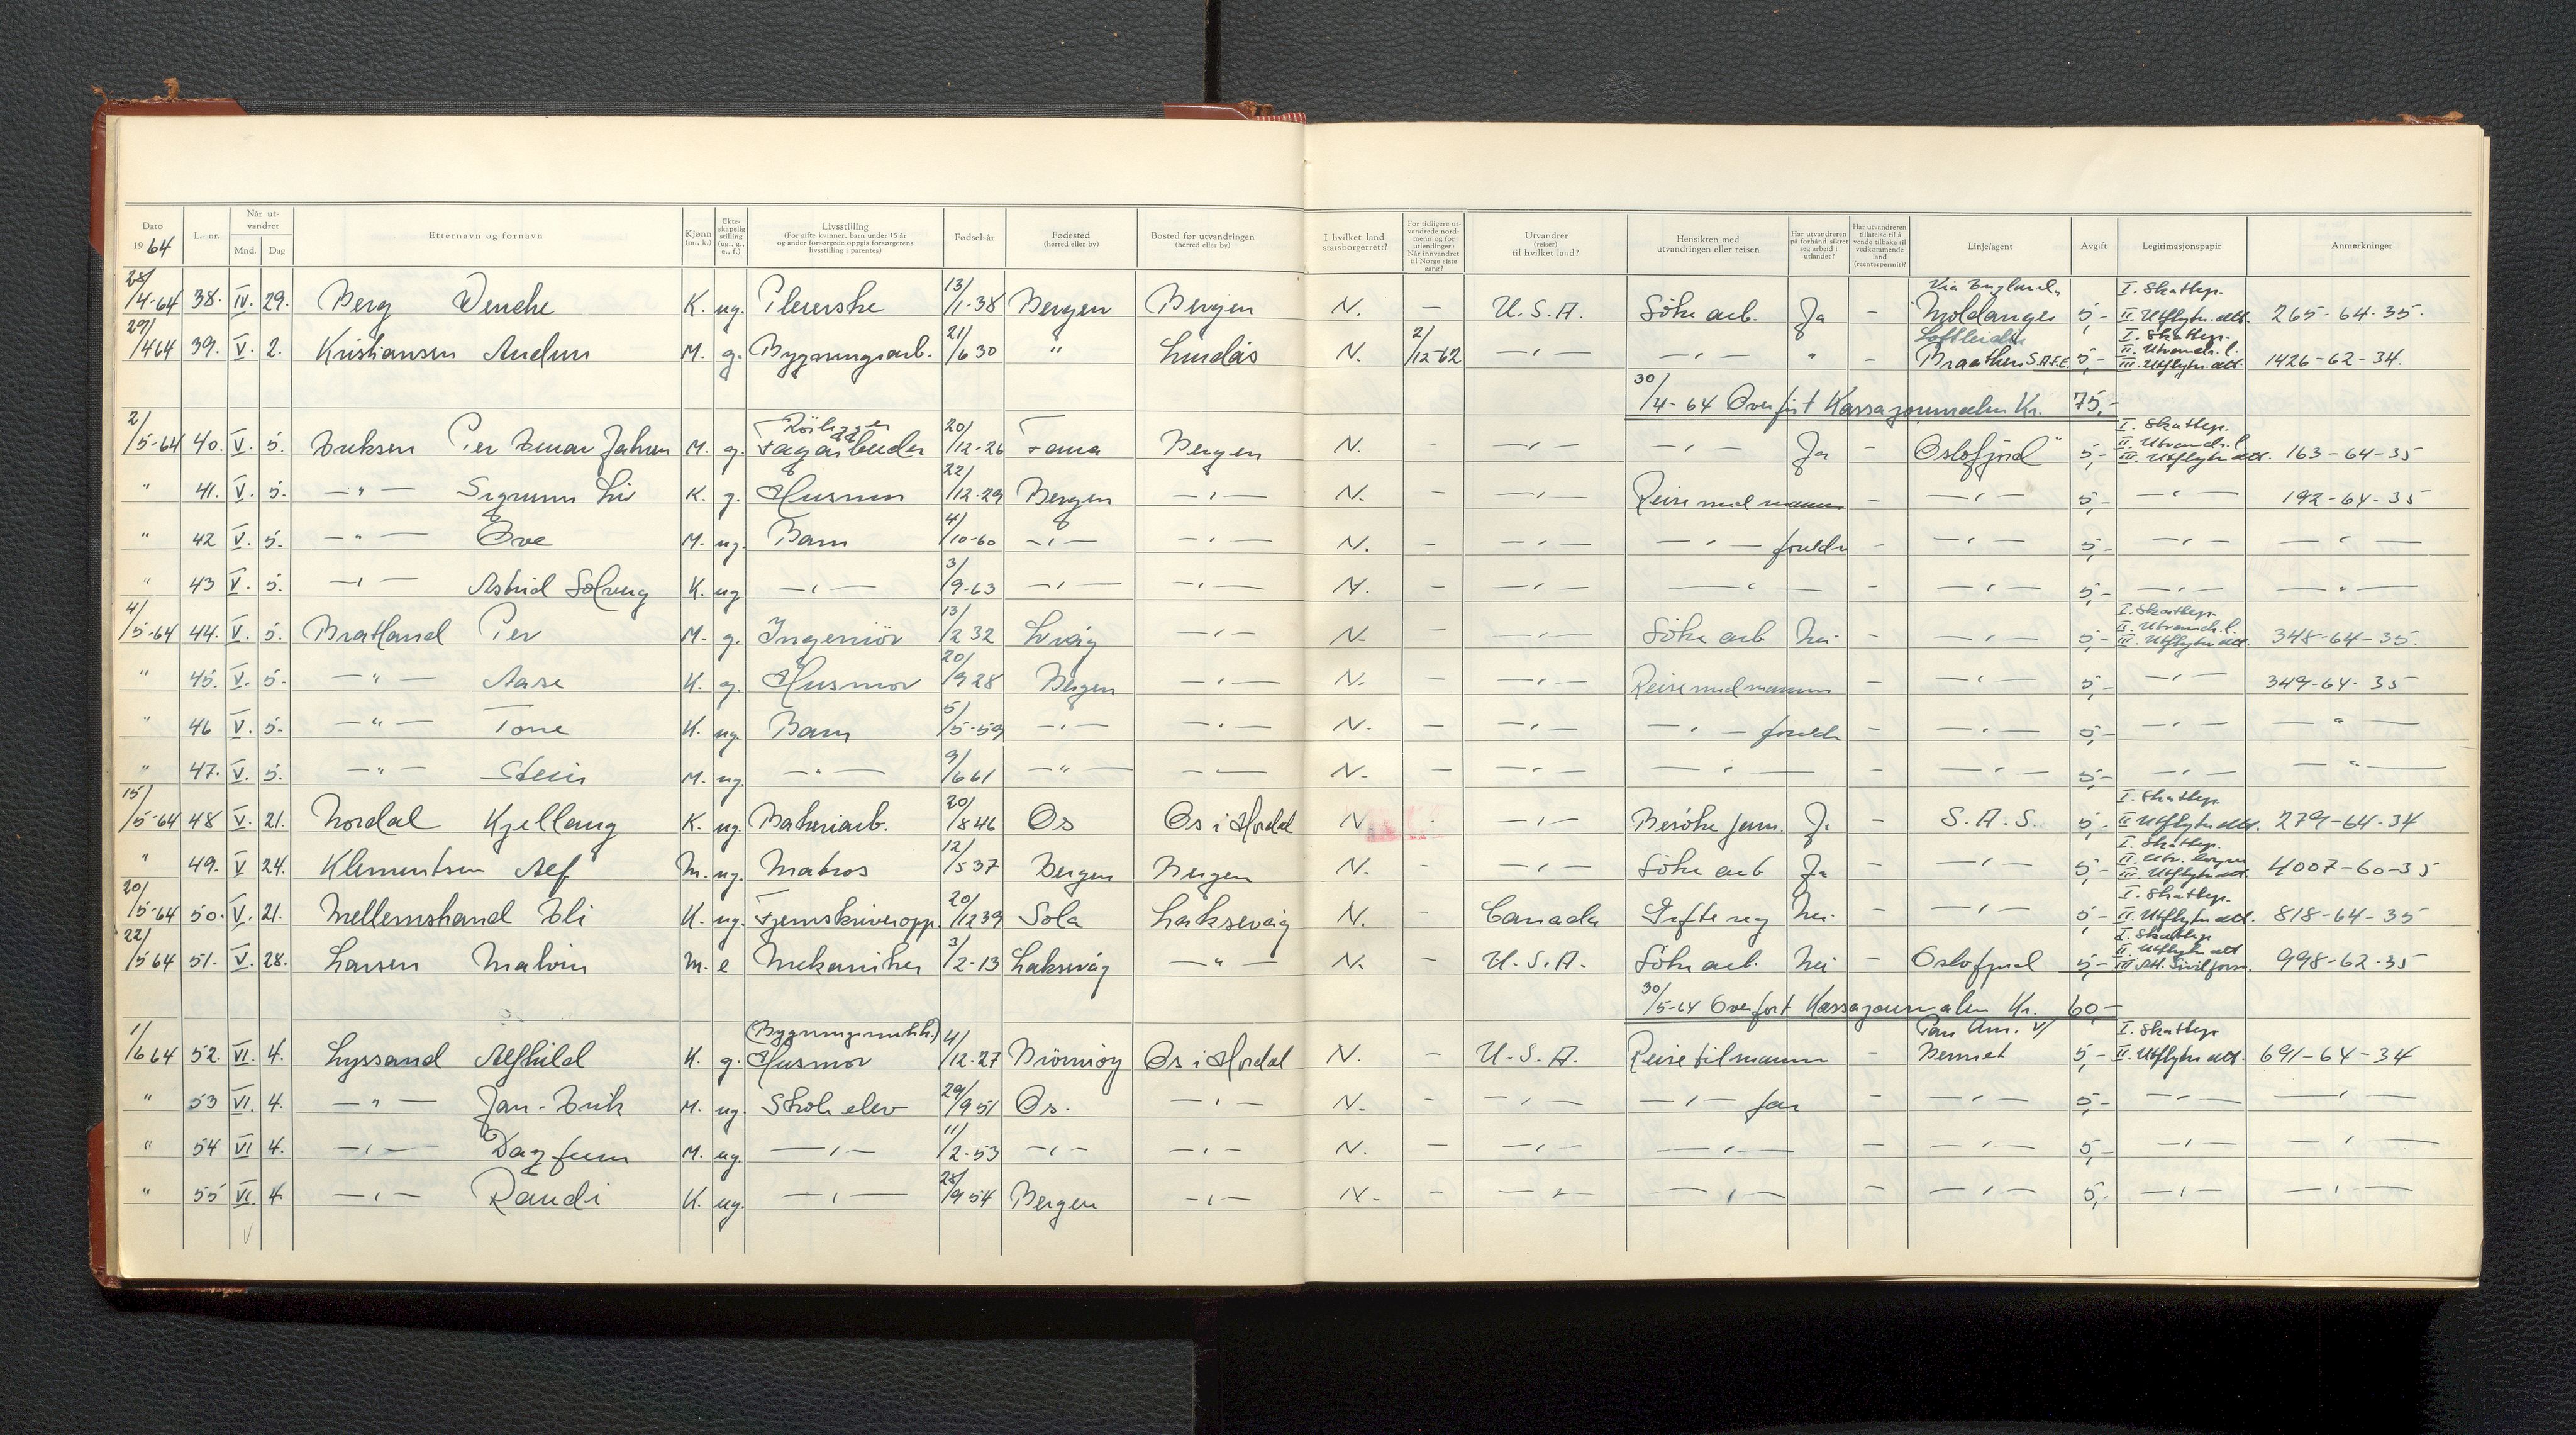 Dato 1964 | L.-nr. | Når utvandret Mnd. Dag | Etternavn og fornavn | Kjønn (m., k.) | Ekteskapelig stilling (ug., g., e., f.) | Livsstilling (For gifte kvinner, barn under 15 år og andre forsørgede oppgis forsørgerens livsstilling i parentes) | Fødselsår | Fødested (herred eller by) | Bosted før utvandringen (herred eller by) | I hvilket land statsborgerrett? | For tidligere utvandrede nordmenn og for utlendinger: Når innvandret til Norge siste gang? | Utvandrer (reiser) til hvilket land? | Hensikten med utvandringen eller reisen | Har utvandreren på forhånd sikret seg arbeid i utlandet? | Har utvandreren tillatelse til å vende tilbake til vedkommende land (reenterpermit)? | Linje/agent | Avgift | Legitimasjonspapir | Anmerkninger
28/4-64 38. IV. 29. Berg Wenche K. ug. Pleierske 13/1-38 Bergen Bergen N. — U.S.A. Söke arb. Ja - Via England, Moldanger 5,- I. Skattep. II. Utflytn. att. 265-64-35.
29/4 64 39. V. 2. Kristiansen Audun M. g. Bygningsarb. 21/6 30 " Lindås N. 2/12-62 —"— —"— " - Loftleidir Braathen S.A.F.E. 5,- I. Skattep. II. Utvandr. l. III. Utflytn. att. 1426-62-34.
30/4-64 Overfört Kassajournalen Kr. 75,-
2/5-64 40. V. 5. Eriksen Per Einar Johan M. g. Rörlegger Fagarbeider 20/12-26 Fana Bergen N. - —"— —"— Ja - Oslofjord" 5,- I. Skattep. II. Utvandr. l. III. Utflytn. att. 163-64-35
" 41. V. 5. —"— Sigrunn Liv K. g. Husmor 22/12-29 Bergen —"— N. - —"— Reise med mannen - —"— 5,- —"— 192-64-35
" 42 V. 5. —"— Ove M. ug. Barn 4/10-60 —"— —"— N. - —"— —"— foreldre - —"— 5,- —"— —"—
" 43 V. 5. —"— Astrid Solveig K. ug —"— 3/9-63 —"— —"— N. - —"— —"— - —"— 5,- —"— —"—
4/5-64 44. V. 5. Bratland Per M. g. Ingeniör 13/2 32 —"— N. - —"— Söke arb Nei - —"— 5,- I. Skattep. II. Utvandr. l. III. Utflytn att. 348-64-35.
" 45. V. 5. —"— Aase K. g. Husmor 20/9 28 Bergen —"— N. - —"— Reise med mannen - —"— 5,- —"— 349-64-35
" 46 V. 5. —"— Tone K. ug. Barn 5/5-59 —"— —"— N. - —"— —"— foreldre - —"— 5,- —"— —"—
" 47. V. 5. —"— Stein M. ug. —"— 9/6 61 —"— —"— N. - —"— —"— - —"— 5,- —"— —"—
15/5-64 48 V. 21. Nordal Kjellaug K. ug. Bakeriarb. 20/8 46 Os Os i Hordal N. - —"— Besöke fam. Ja - S.A.S. 5,- I. Skattep. II Utflytn att. 279-64-34
" 49. V 24. Klementsen Alf M. ug. Matros 12/5 37 Bergen Bergen N. - —"— Söke arb Ja - —"— 5,- I. Skattep. II. Utv. III. Utflytn att. 4007-60-35
20/5-64 50. V. 21. Mellemstrand Eli K. ug. Fjernskriveropp. 20/12 39 Sola Laksevåg N. - Canada Gifte seg Nei - —"— 5,- I. Skattep. II. Utflytn att. 818-64-35
22/5 64 51. V. 28. Larsen Malvin M. e Mekaniker 3/2-13 Laksevåg —"— N. - U.S.A. Söke arb. Nei - Oslofjord 5,- I. Skattep. II Utflytn att III Att. Sivilforsv. 998-62-35
30/5-64 Overfört Kassajournalen Kr. 60-
1/6 64 52. VI. 4. Lyssand Alfhild K. g. (Bygningssnekk.) Husmor 4/12-27 Brönnöy Os i Hordal N. - U.S.A. Reise til mannen - Pan Am. v/ Bennet 5,- I. Skattep II. Utflytn att. 691-64-34
" 53 VI. 4. —"— Jan-Erik M. ug Skoleelev 29/9 51 Os. —"— N. - —"— —"— far - —"— 5,- —"— —"—
" 54 VI 4. —"— Dagfinn M. ug. —"— 11/2-53 —"— —"— N. - —"— —"— - —"— 5,- —"— —"—
" 55 VI. 4. —"— Randi K. ug. —"— 28/9 54 Bergen —"— N. - —"— —"— - —"— 5,- —"— —"—